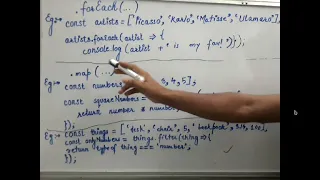 .forEach(...)
Eg:- const artists = ['Picasso', 'Kahlo', 'Matisse', 'Utamaro'];
artists.forEach(artist => {
console.log(artist + " is my fav!")});
.map(...
Eg:- const numbers 3, 4, 5];
const squareNumbers
return number
});
Eg:- const things = ['desk', 'chair', 5, 'backpack',
const onlyNumbers = things.filter(thing => {
return typeof thing === 'number';
});